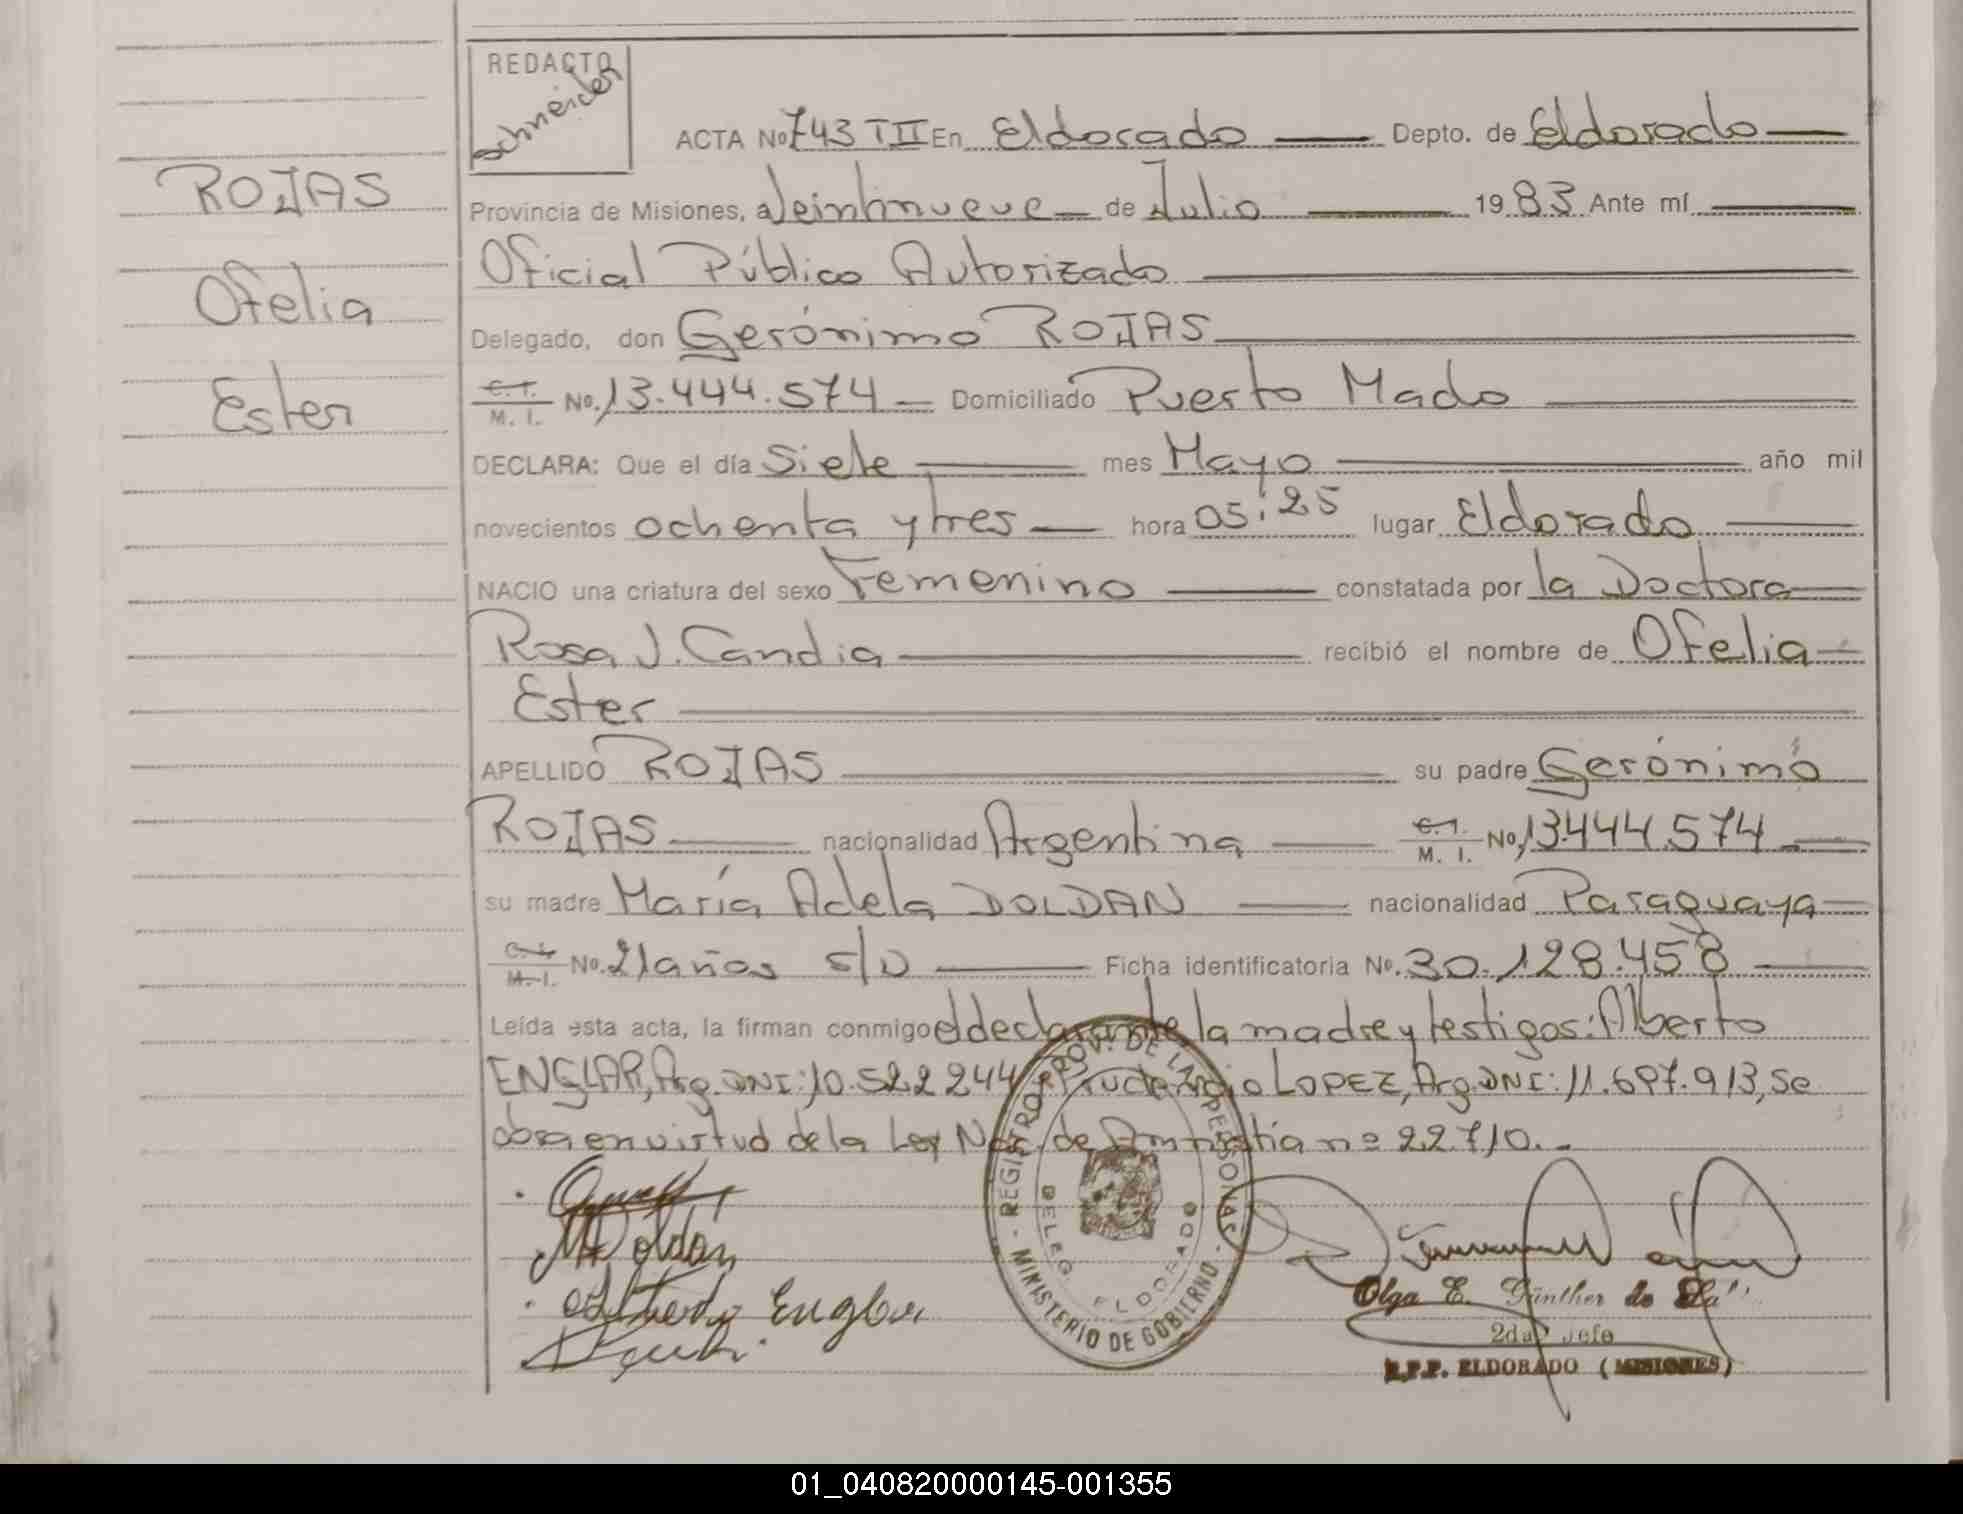 REDACTO
Schneider
ROJAS
Ofelia
Ester
ACTA No 743 TII En Eldorado Depto. de Eldorado
Provincia de Misiones, a Veintinueve de Julio 1983 Ante mí
Oficial Público Autorizado
Delegado, don Gerónimo ROJAS
C.I. M. I. No. 13.444.574 Domiciliado Puerto Mado
DECLARA: Que el día Siete mes Mayo año mil
novecientos ochenta y tres hora 05:25 lugar Eldorado
NACIO una criatura del sexo Femenino constatada por la Doctora
Rosa J. Candia recibió el nombre de Ofelia
Ester
APELLIDO ROJAS su padre Gerónimo
ROJAS nacionalidad Argentina C.I. M. I. No. 13.444.574
su madre María Adela DOLDAN nacionalidad Paraguaya
C.I. M.I. No. 21 años s/D Ficha identificatoria No. 30.128.458
Leída esta acta, la firman conmigo el declarante la madre y testigos: Alberto
ENGLAR, Arg. DNI: 10.522.244 Prudencio LOPEZ, Arg. DNI: 11.697.913, Se
obra en virtud de la Ley Nac. de Amnistía nº 22.710.-
MADoldán
Englar
REGISTRO PROV. DE LAS PERSONAS
DELEG. ELDORADO
MINISTERIO DE GOBIERNO
Olga E. Günther de
2da Jefe
R.P.P. ELDORADO (MISIONES)
01_040820000145-001355